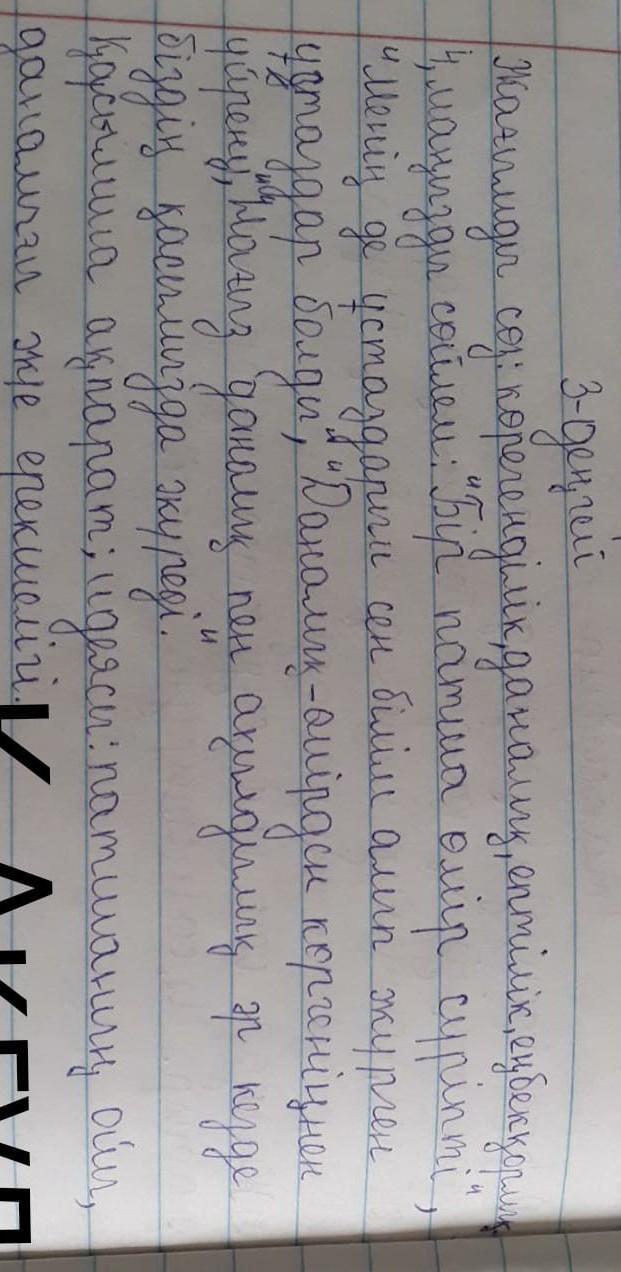 3-деңгей
Жағымды сөз: көрегенділік, даналық, ептілік, еңбекқорлық
маңызды сөйлем: "Бір патша өмір сүріпті",
"Менің де ұстаздарым сен білім алып жүрген
ұстаздар болды", "Даналық-өмірден көргеніңнен
үйрену", "Нағыз даналық пен ақылдылық әр кезде
біздің қасымызда жүреді."
Қосымша ақпарат; идеясы: патшаның ойы,
даналығы және ерекшелігі.